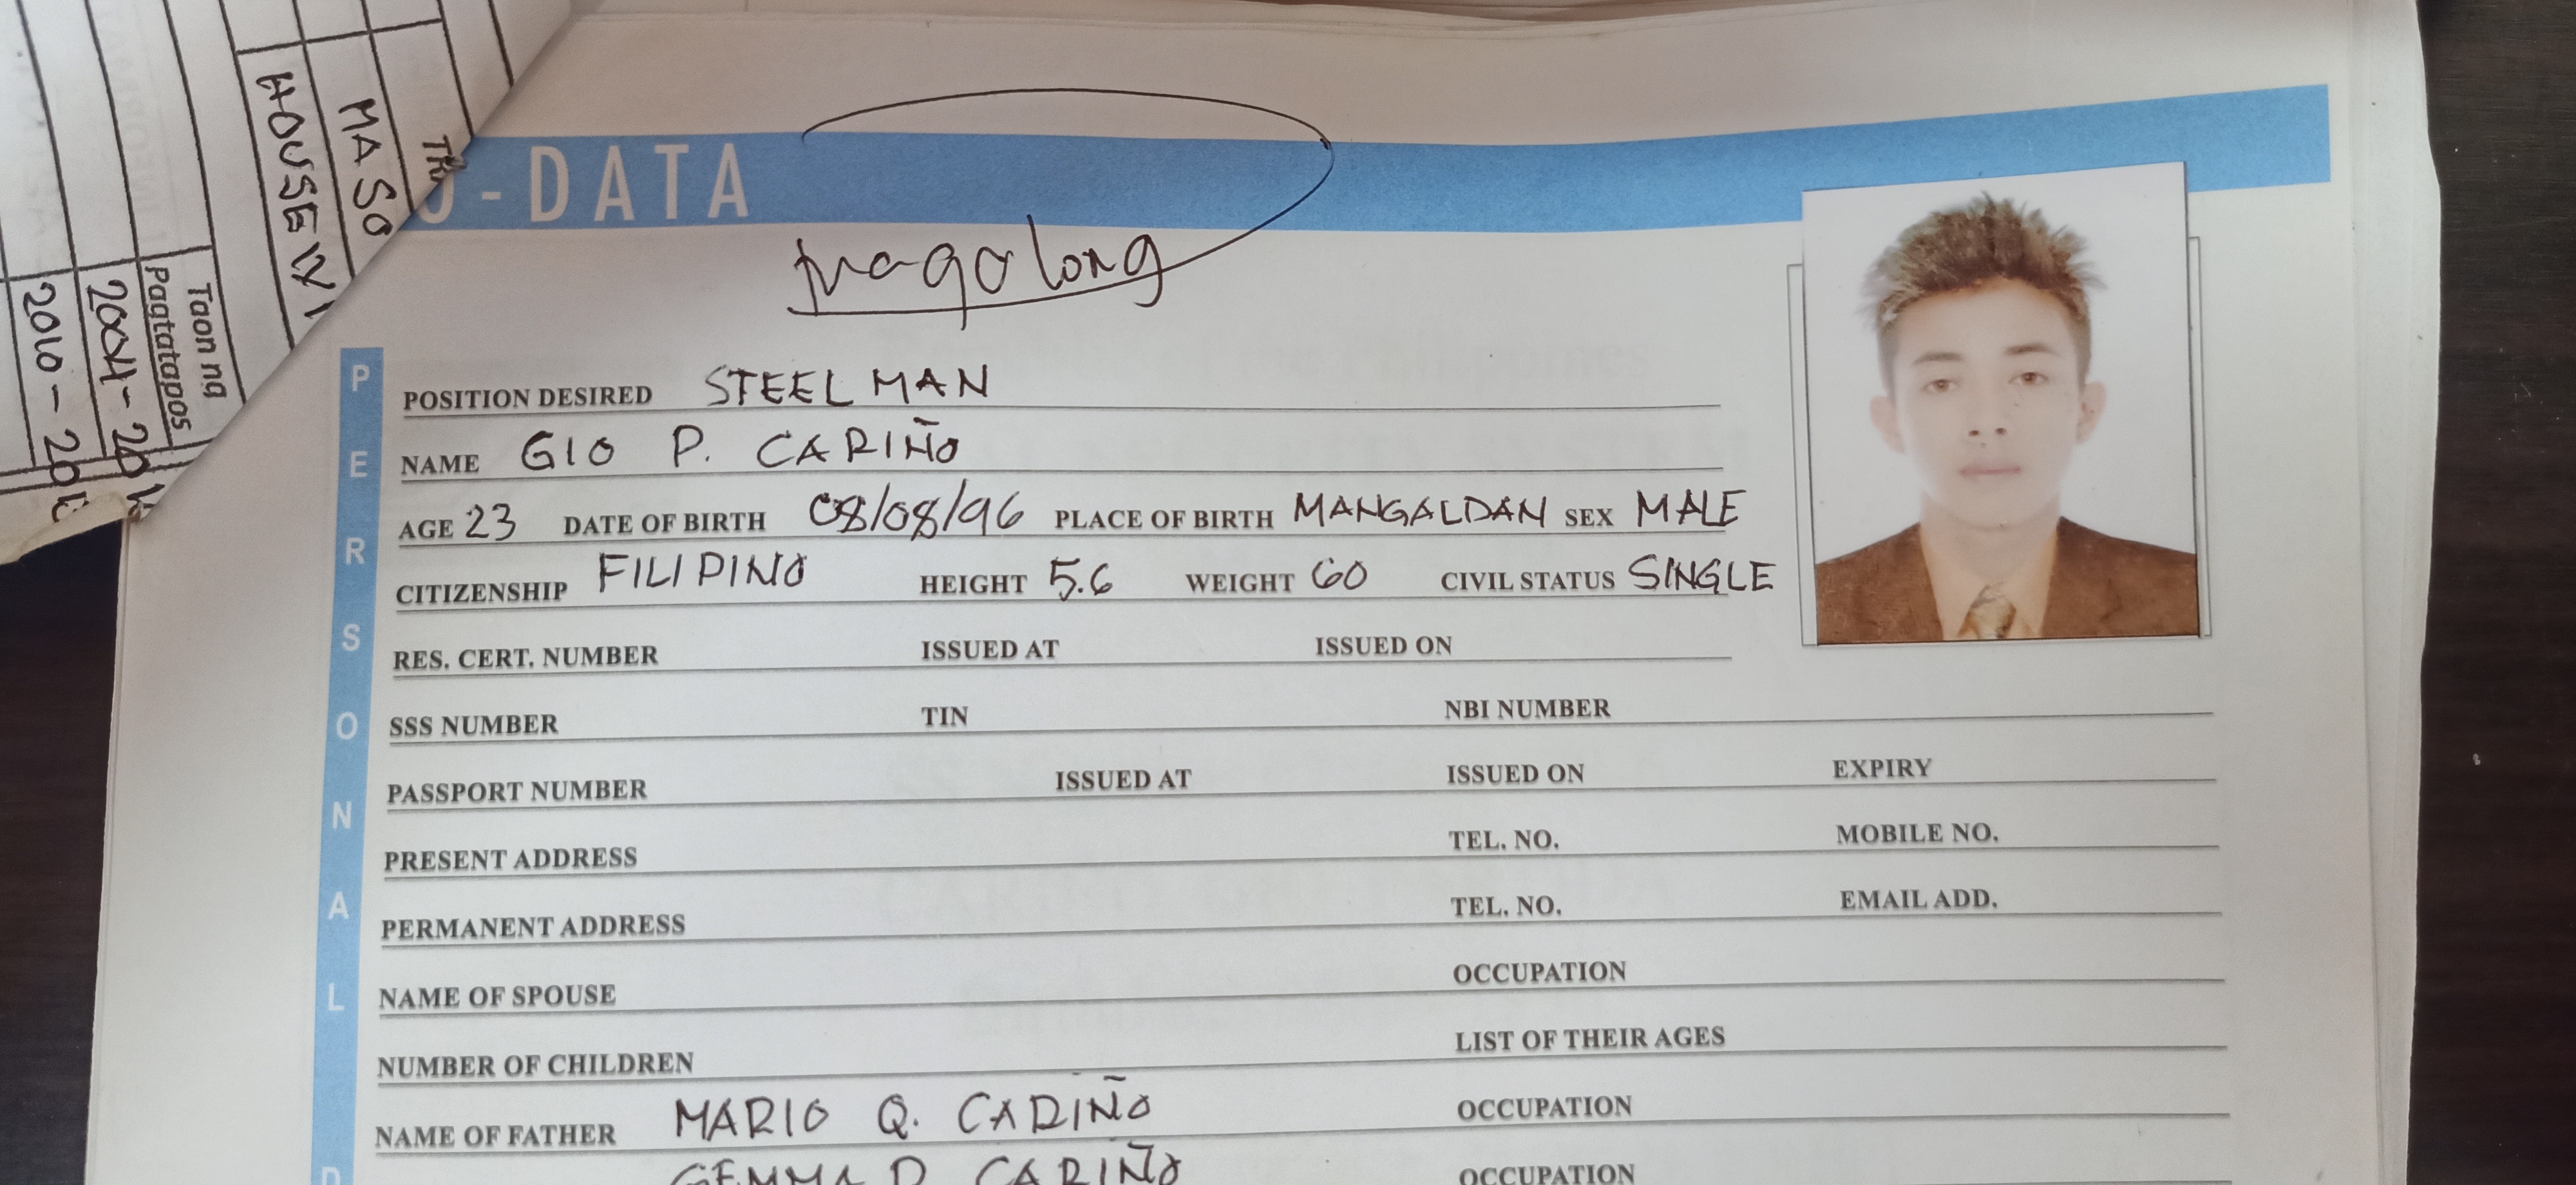 O-DATA
pagolong
PERSONAL D
POSITION DESIRED STEEL MAN
NAME GIO P. CARIÑO
AGE 23 DATE OF BIRTH 08/08/96 PLACE OF BIRTH MANGALDAN SEX MALE
CITIZENSHIP FILIPINO HEIGHT 5.6 WEIGHT 60 CIVIL STATUS SINGLE
RES. CERT. NUMBER ISSUED AT ISSUED ON
SSS NUMBER TIN NBI NUMBER
PASSPORT NUMBER ISSUED AT ISSUED ON EXPIRY
PRESENT ADDRESS TEL. NO. MOBILE NO.
PERMANENT ADDRESS TEL. NO. EMAIL ADD.
NAME OF SPOUSE OCCUPATION
NUMBER OF CHILDREN LIST OF THEIR AGES
NAME OF FATHER MARIO Q. CARIÑO OCCUPATION
GEMMA P. CARIÑO OCCUPATION
MASO
HOUSEWI
Taon ng
Pagtatapos
2004-20
2010-201